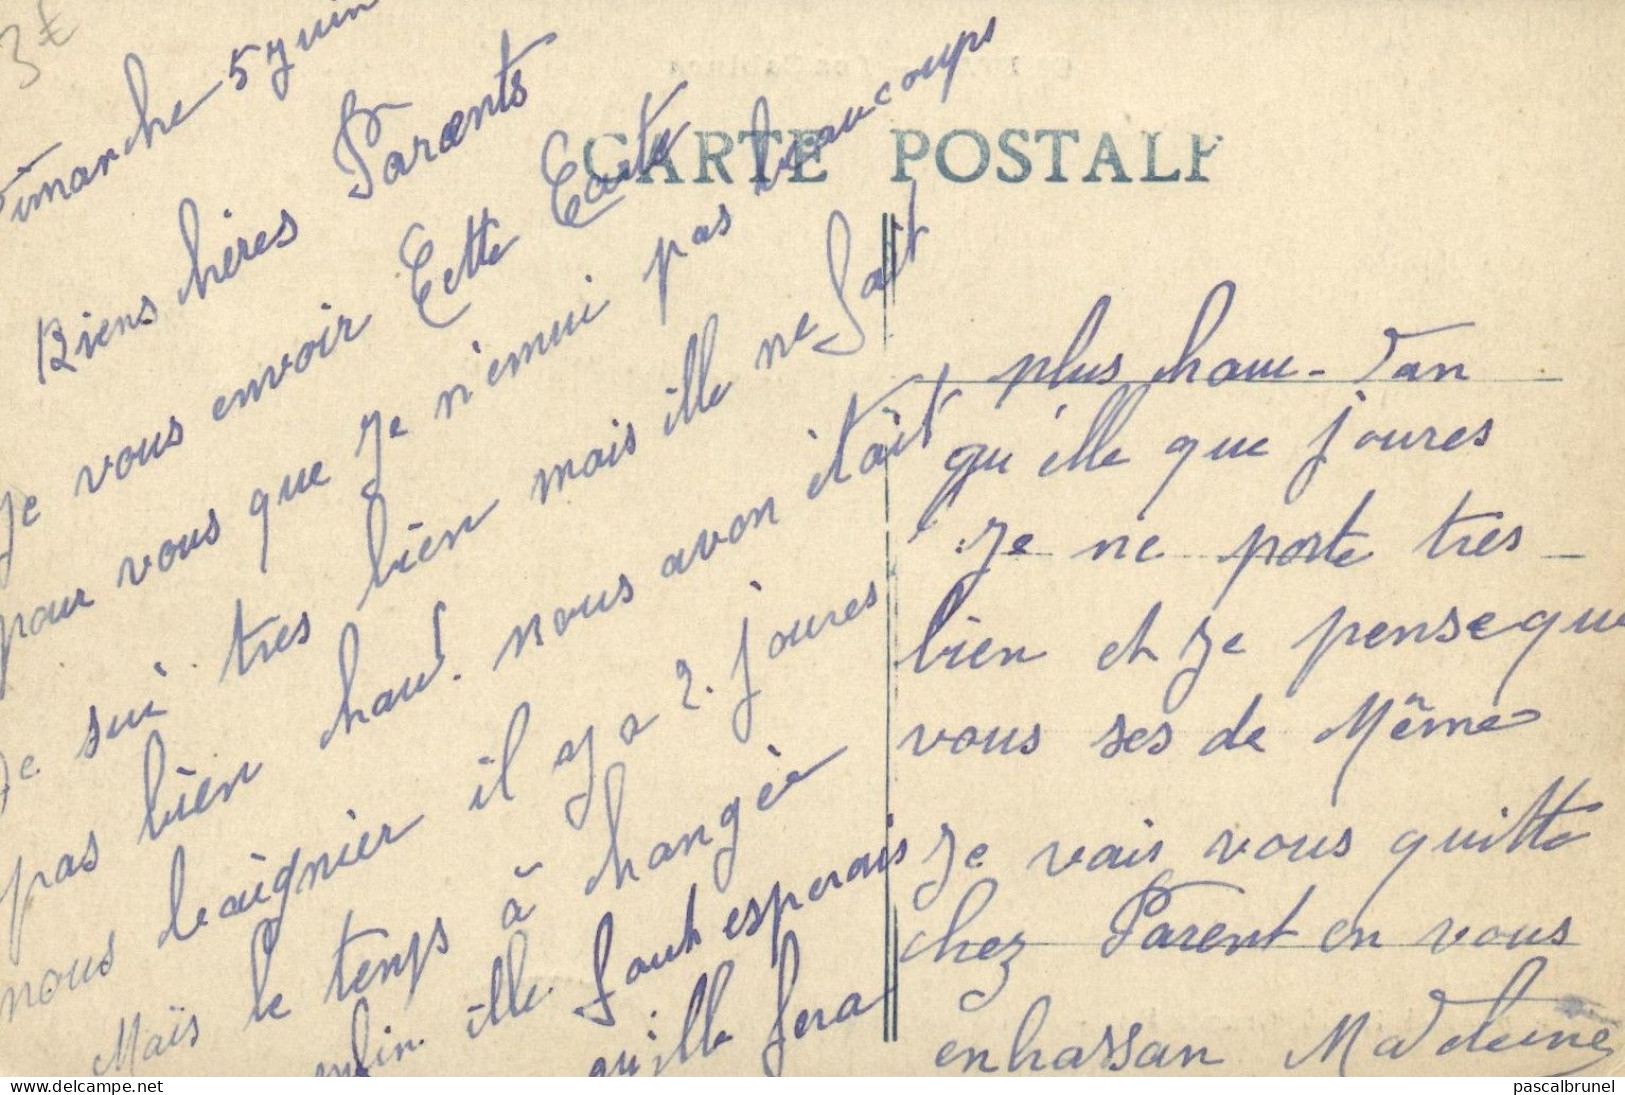 3€
CARTE POSTALE
Dimanche 5 Juin
Biens hères Parents
Je vous envoir Cette Carte
pour vous que Je n'ennui pas beaucoups
Je sui tres bien mais ille ne fait
pas bien haud. nous avon itait
nous baignier il y a 2. joures
Maïs le temps à changèr
enfin ille faut esperais
qu'ille fera
plus haue - Dan
qu'elle que joures
Je ne porte tres
bien et Je pense que
vous ses de Même
Je vais vous quitte
chez Parent en vous
enbrassan Madeleine
pascalbrunel